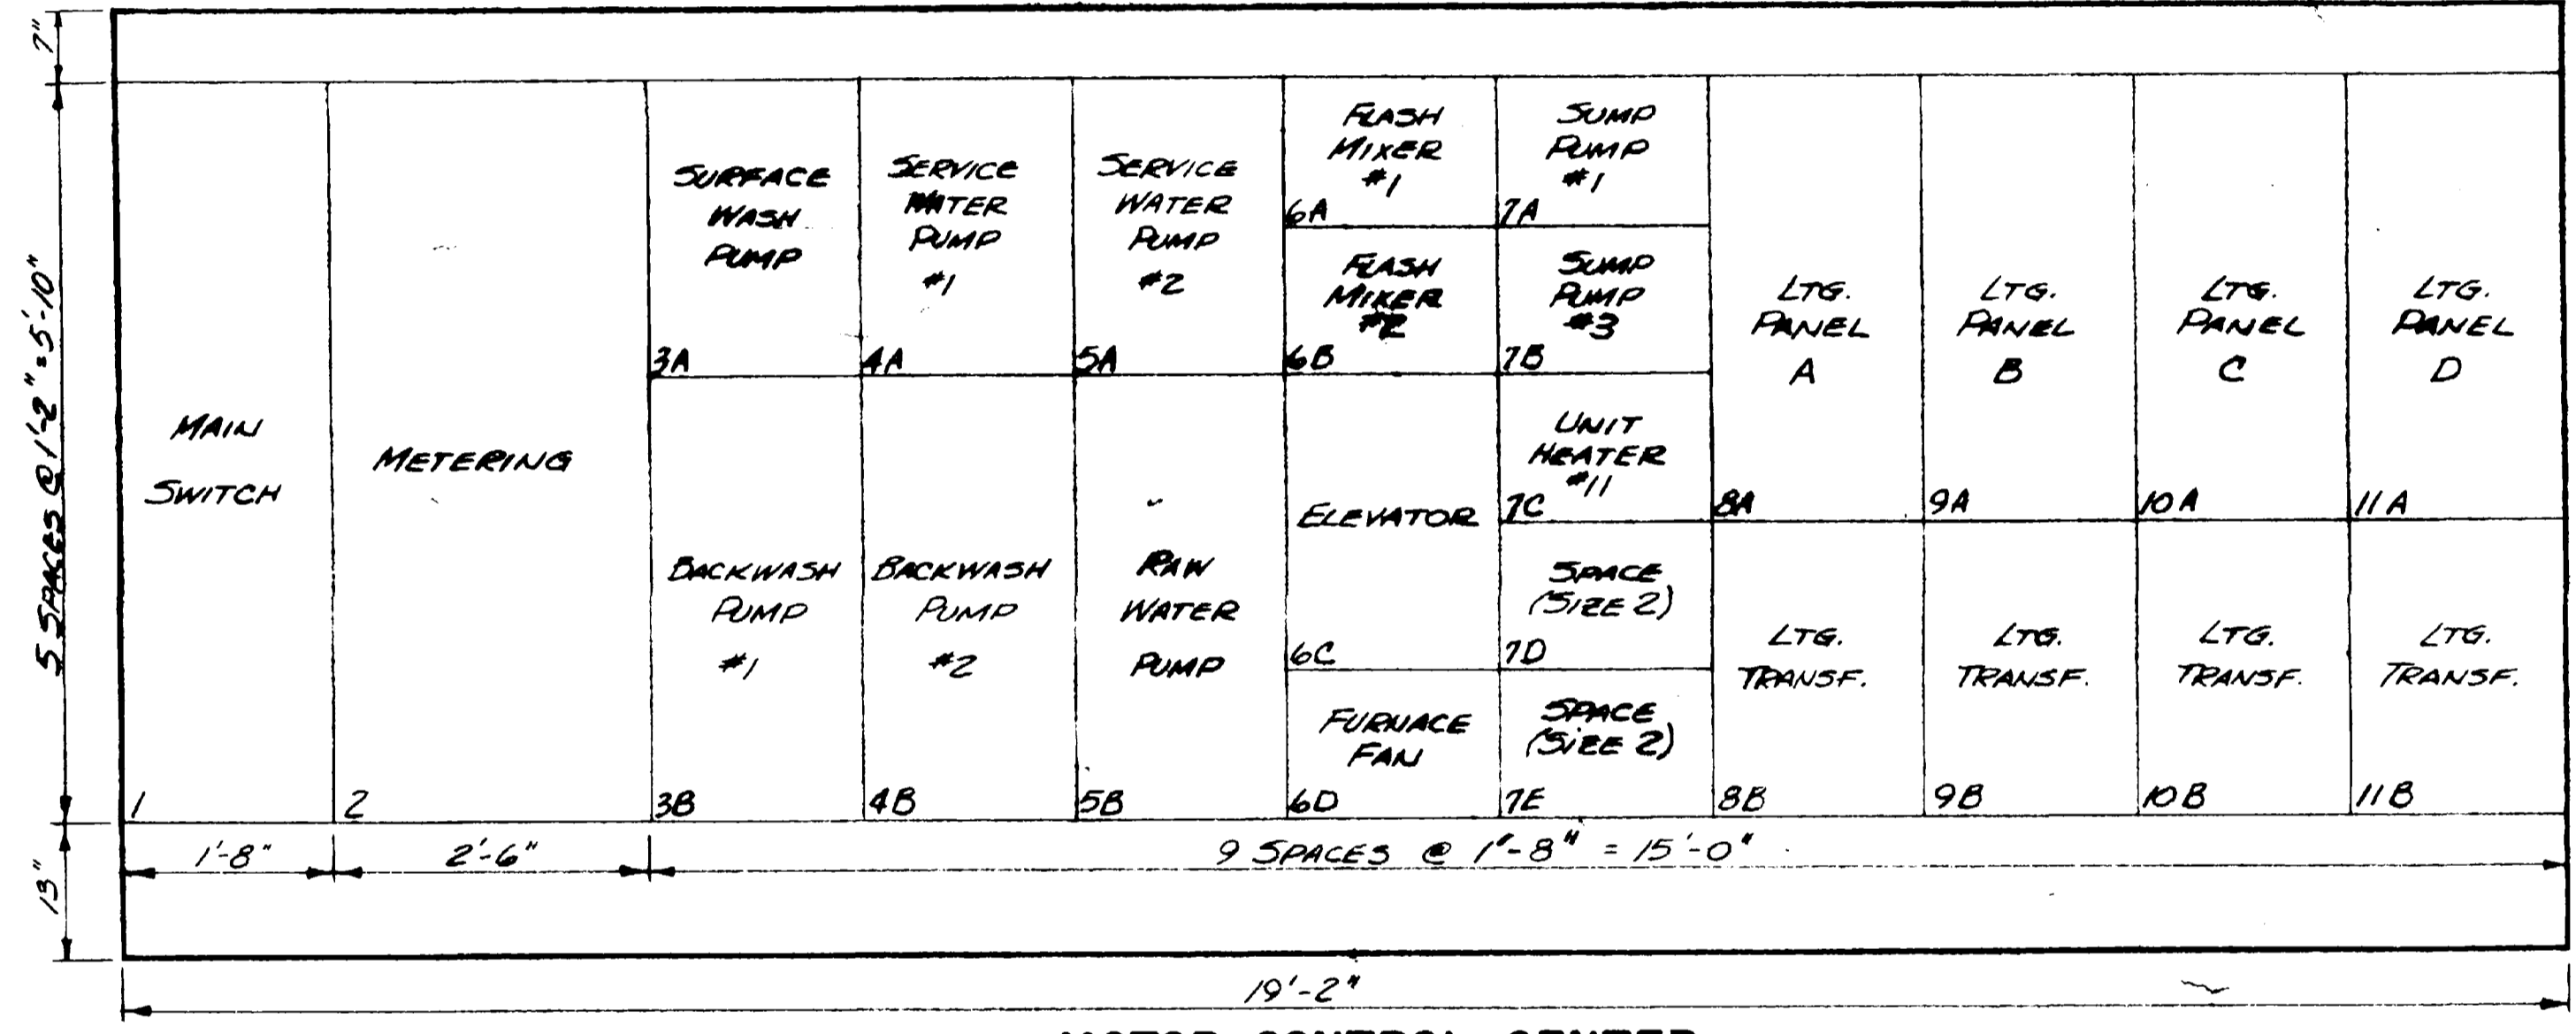 7"
5 SPACES @ 1'-2" = 5'-10"
13"
MAIN
SWITCH
1
METERING
2
SURFACE
WASH
PUMP
3A
BACKWASH
PUMP
#1
3B
SERVICE
WATER
PUMP
#1
4A
BACKWASH
PUMP
#2
4B
SERVICE
WATER
PUMP
#2
5A
RAW
WATER
PUMP
5B
FLASH
MIXER
#1
6A
FLASH
MIXER
#2
6B
ELEVATOR
6C
FURNACE
FAN
6D
SUMP
PUMP
#1
7A
SUMP
PUMP
#3
7B
UNIT
HEATER
#11
7C
SPACE
(SIZE 2)
7D
SPACE
(SIZE 2)
7E
LTG.
PANEL
A
8A
LTG.
TRANSF.
8B
LTG.
PANEL
B
9A
LTG.
TRANSF.
9B
LTG.
PANEL
C
10A
LTG.
TRANSF.
10B
LTG.
PANEL
D
11A
LTG.
TRANSF.
11B
1'-8"
2'-6"
9 SPACES @ 1'-8" = 15'-0"
19'-2"
MOTOR CONTROL CENTER